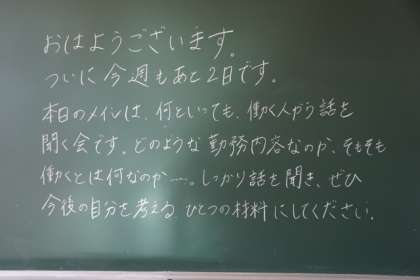 おはようございます。
ついに今週もあと2日です。
本日のメインは、何といっても、働く人から話を
聞く会です。どのような勤務内容なのか、そもそも
働くとは何なのか…。しっかり話を聞き、ぜひ
今後の自分を考える、ひとつの材料にしてください。